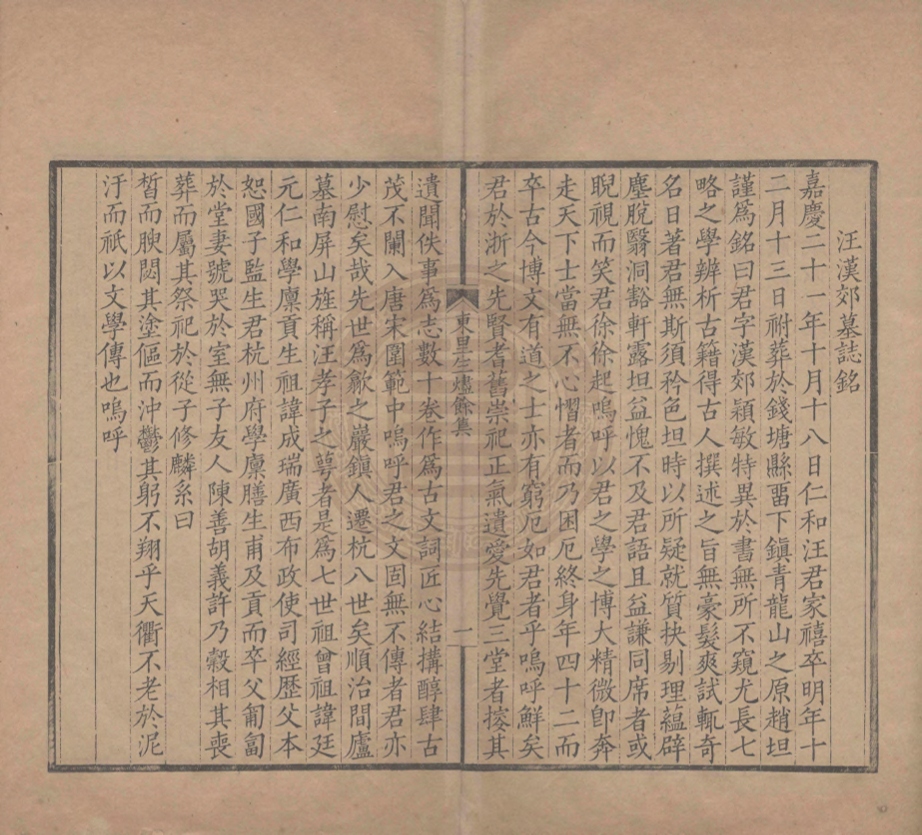 汪漢郊墓誌銘
嘉慶二十一年十月十八日仁和汪君家禧卒明年十
二月十三日祔葬於錢塘縣畱下鎭青龍山之原趙坦
謹爲銘曰君字漢郊穎敏特異於書無所不窺尤長七
略之學辨析古籍得古人撰述之旨無豪髮爽試輒奇
名日著君無斯須矜色坦時以所疑就質抉剔理蘊辟
塵脫翳洞豁軒露坦益愧不及君語且益謙同席者或
睨視而笑君徐徐起嗚呼以君之學之博大精微卽奔
走天下士當無不心慴者而乃困厄終身年四十二而
卒古今博文有道之士亦有窮厄如君者乎嗚呼鮮矣
君於浙之先賢耆舊崇祀正氣遺愛先覺三堂者搜其
東里生燼餘集
一
遺聞佚事爲志數十卷作爲古文詞匠心結搆醇肆古
茂不闌入唐宋圍範中嗚呼君之文固無不傳者君亦
少慰矣哉先世爲歙之巖鎭人遷杭八世矣順治間廬
墓南屏山旌稱汪孝子之萼者是爲七世祖曾祖諱廷
元仁和學廩貢生祖諱成瑞廣西布政使司經歷父本
恕國子監生君杭州府學廩膳生甫及貢而卒父匍匐
於堂妻號哭於室無子友人陳善胡義許乃穀相其喪
葬而屬其祭祀於從子修麟系曰
晳而腴閼其塗傴而沖鬱其躬不翔乎天衢不老於泥
汙而祇以文學傳也嗚呼